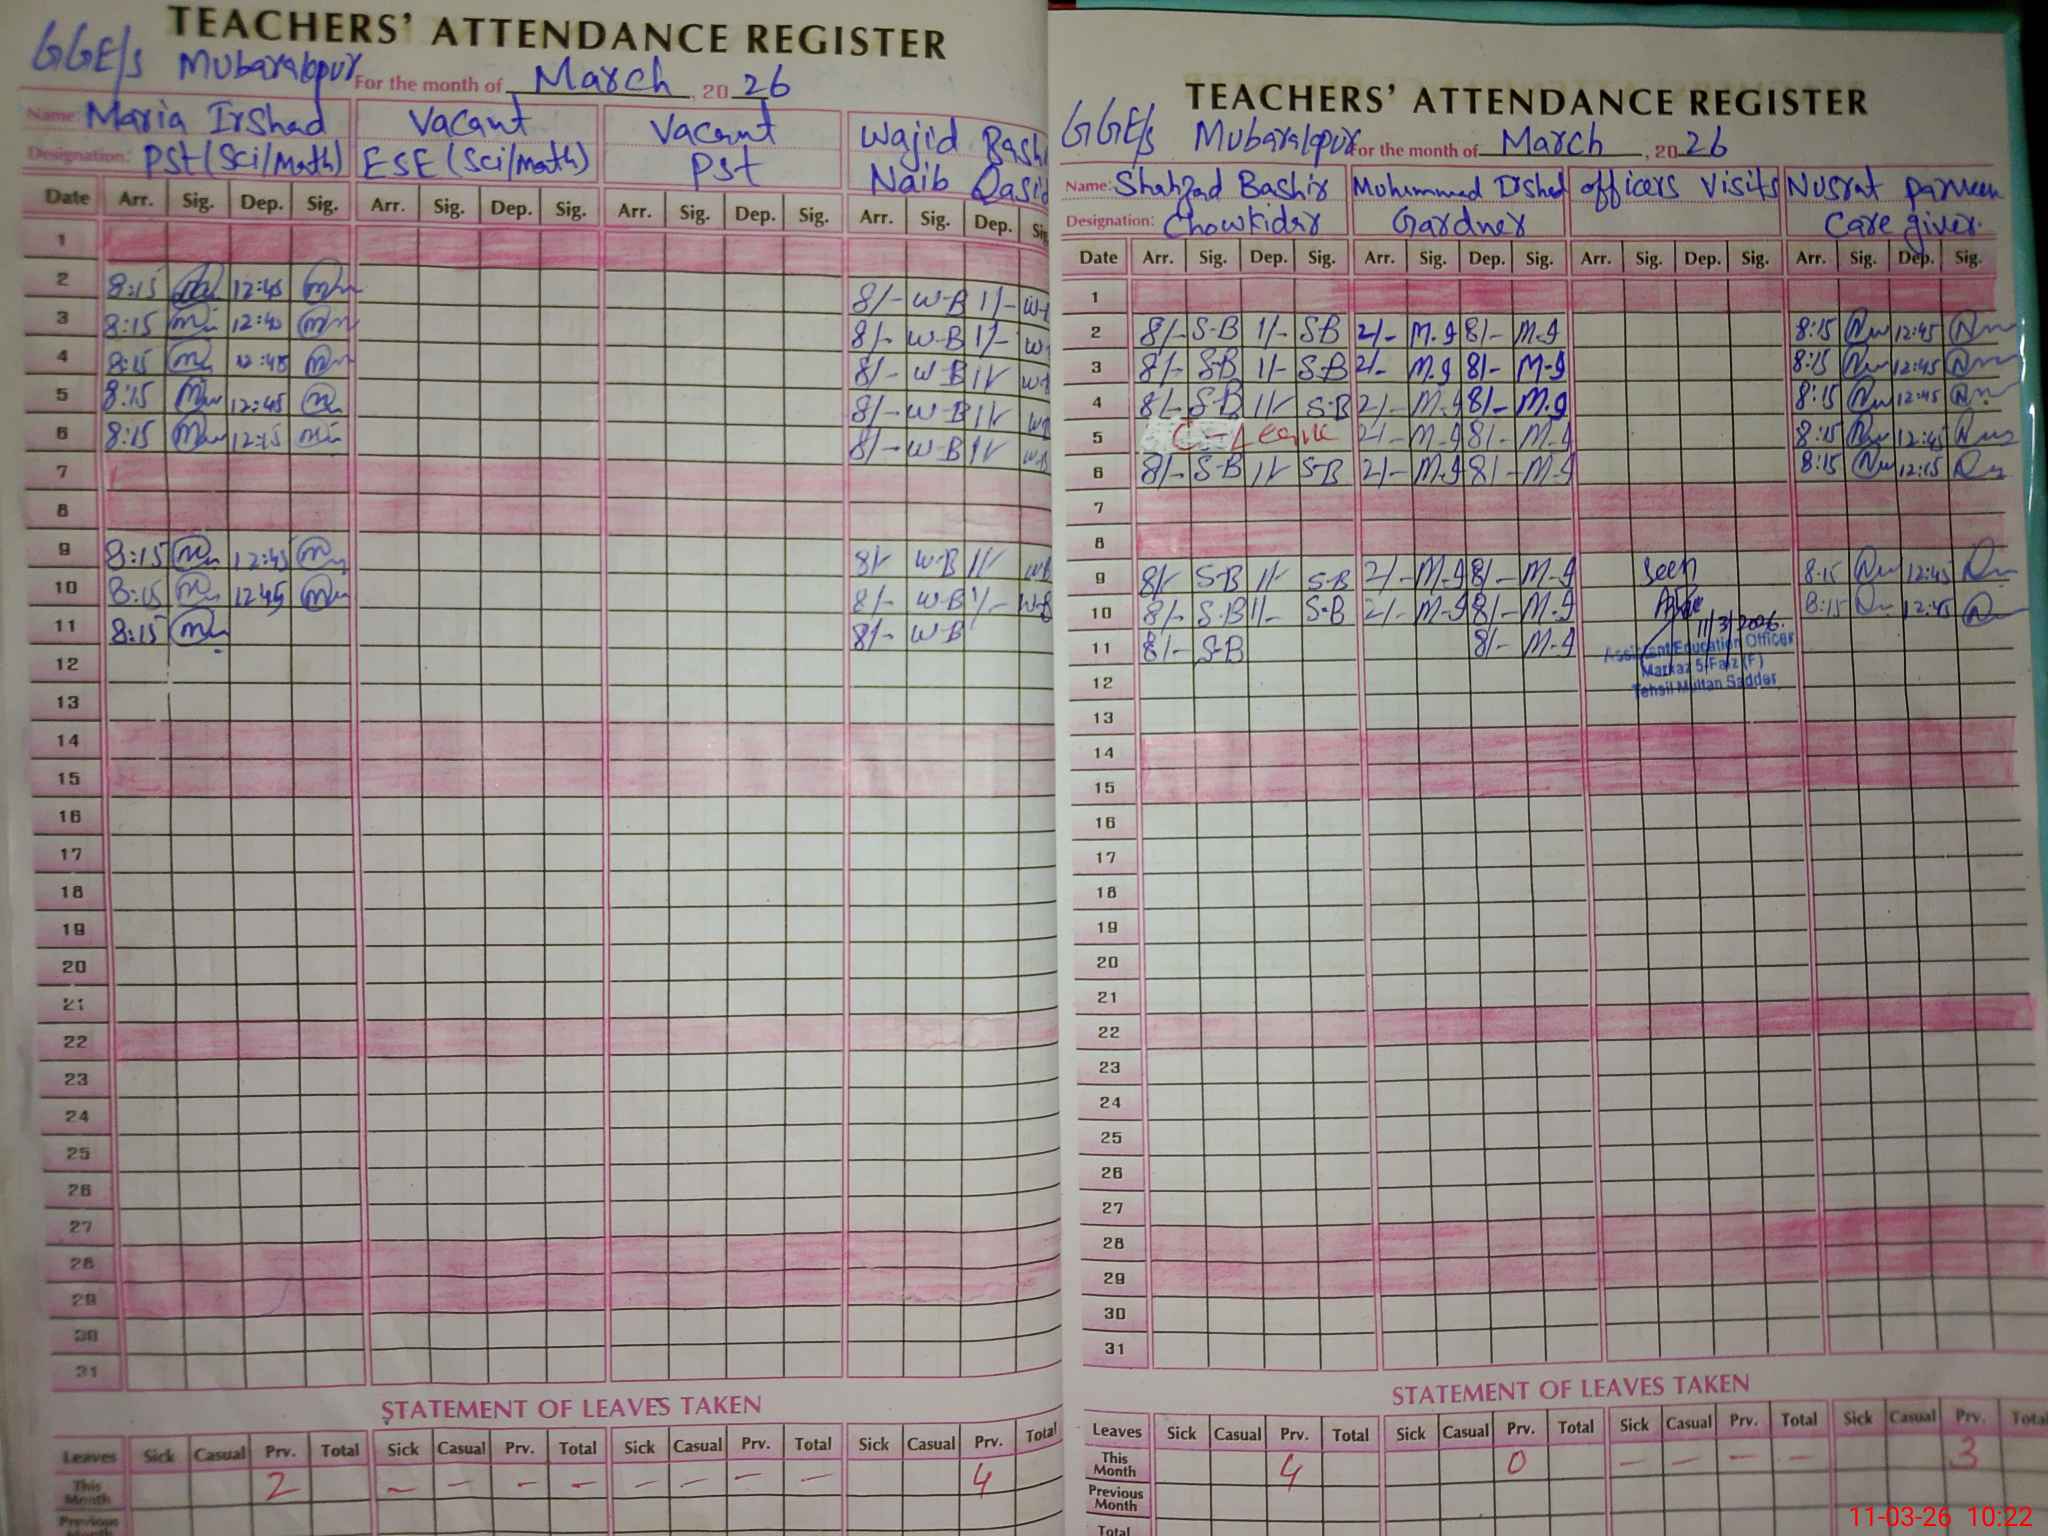 TEACHERS' ATTENDANCE REGISTER
GGE/S Mubarakpur For the month of March, 2026
Name: Maria Irshad Vacant Vacant Wajid Bashi
Designation: PST (Sci/Math) ESE (Sci/Math) PST Naib Qasid
Date Arr. Sig. Dep. Sig. Arr. Sig. Dep. Sig. Arr. Sig. Dep. Sig. Arr. Sig. Dep. Sig
1
2 8:15 12:45 8/- W-B 1/-
3 8:15 12:45 8/- W-B 1/-
4 8:15 12:45 8/- W-B 1/-
5 8:15 12:45 8/- W-B 1/-
6 8:15 12:15 8/- W-B 1/-
7
8
9 8:15 12:45 8/- W-B 1/-
10 8:15 12:45 8/- W-B 1/- W-B
11 8:15 8/- W-B
12
13
14
15
16
17
18
19
20
21
22
23
24
25
26
27
28
29
30
31
STATEMENT OF LEAVES TAKEN
Leaves Sick Casual Prv. Total Sick Casual Prv. Total Sick Casual Prv. Total Sick Casual Prv. Total
This Month 2 – – – – – – – – 4
Previous Month
TEACHERS' ATTENDANCE REGISTER
GGE/S Mubarakpur For the month of March, 2026
Name: Shahzad Bashir Muhammad Irshad officers Visits Nusrat Parveen
Designation: Chowkidar Gardner Care giver.
Date Arr. Sig. Dep. Sig. Arr. Sig. Dep. Sig. Arr. Sig. Dep. Sig. Arr. Sig. Dep. Sig.
1
2 8/- S-B 1/- S-B 2/- M-I 8/- M-I 8:15 12:45
3 8/- S-B 1/- S-B 2/- M-I 8/- M-I 8:15 12:45
4 8/- S-B 1/- S-B 2/- M-I 8/- M-I 8:15 12:45
5 C-Leave 2/- M-I 8/- M-I 8:15 12:45
6 8/- S-B 1/- S-B 2/- M-I 8/- M-I 8:15 12:15
7
8
9 8/- S-B 1/- S-B 2/- M-I 8/- M-I Seen 8:15 12:45
10 8/- S-B 1/- S-B 2/- M-I 8/- M-I 8:15 12:45
11/3/2026.
11 8/- S-B 8/- M-I
Assistant Education Officer
Markaz 5-Faiz (F)
Tehsil Multan Sadder
12
13
14
15
16
17
18
19
20
21
22
23
24
25
26
27
28
29
30
31
STATEMENT OF LEAVES TAKEN
Leaves Sick Casual Prv. Total Sick Casual Prv. Total Sick Casual Prv. Total Sick Casual Prv. Total
This Month 4 0 – – – – 3
Previous Month
Total
11-03-26 10:22